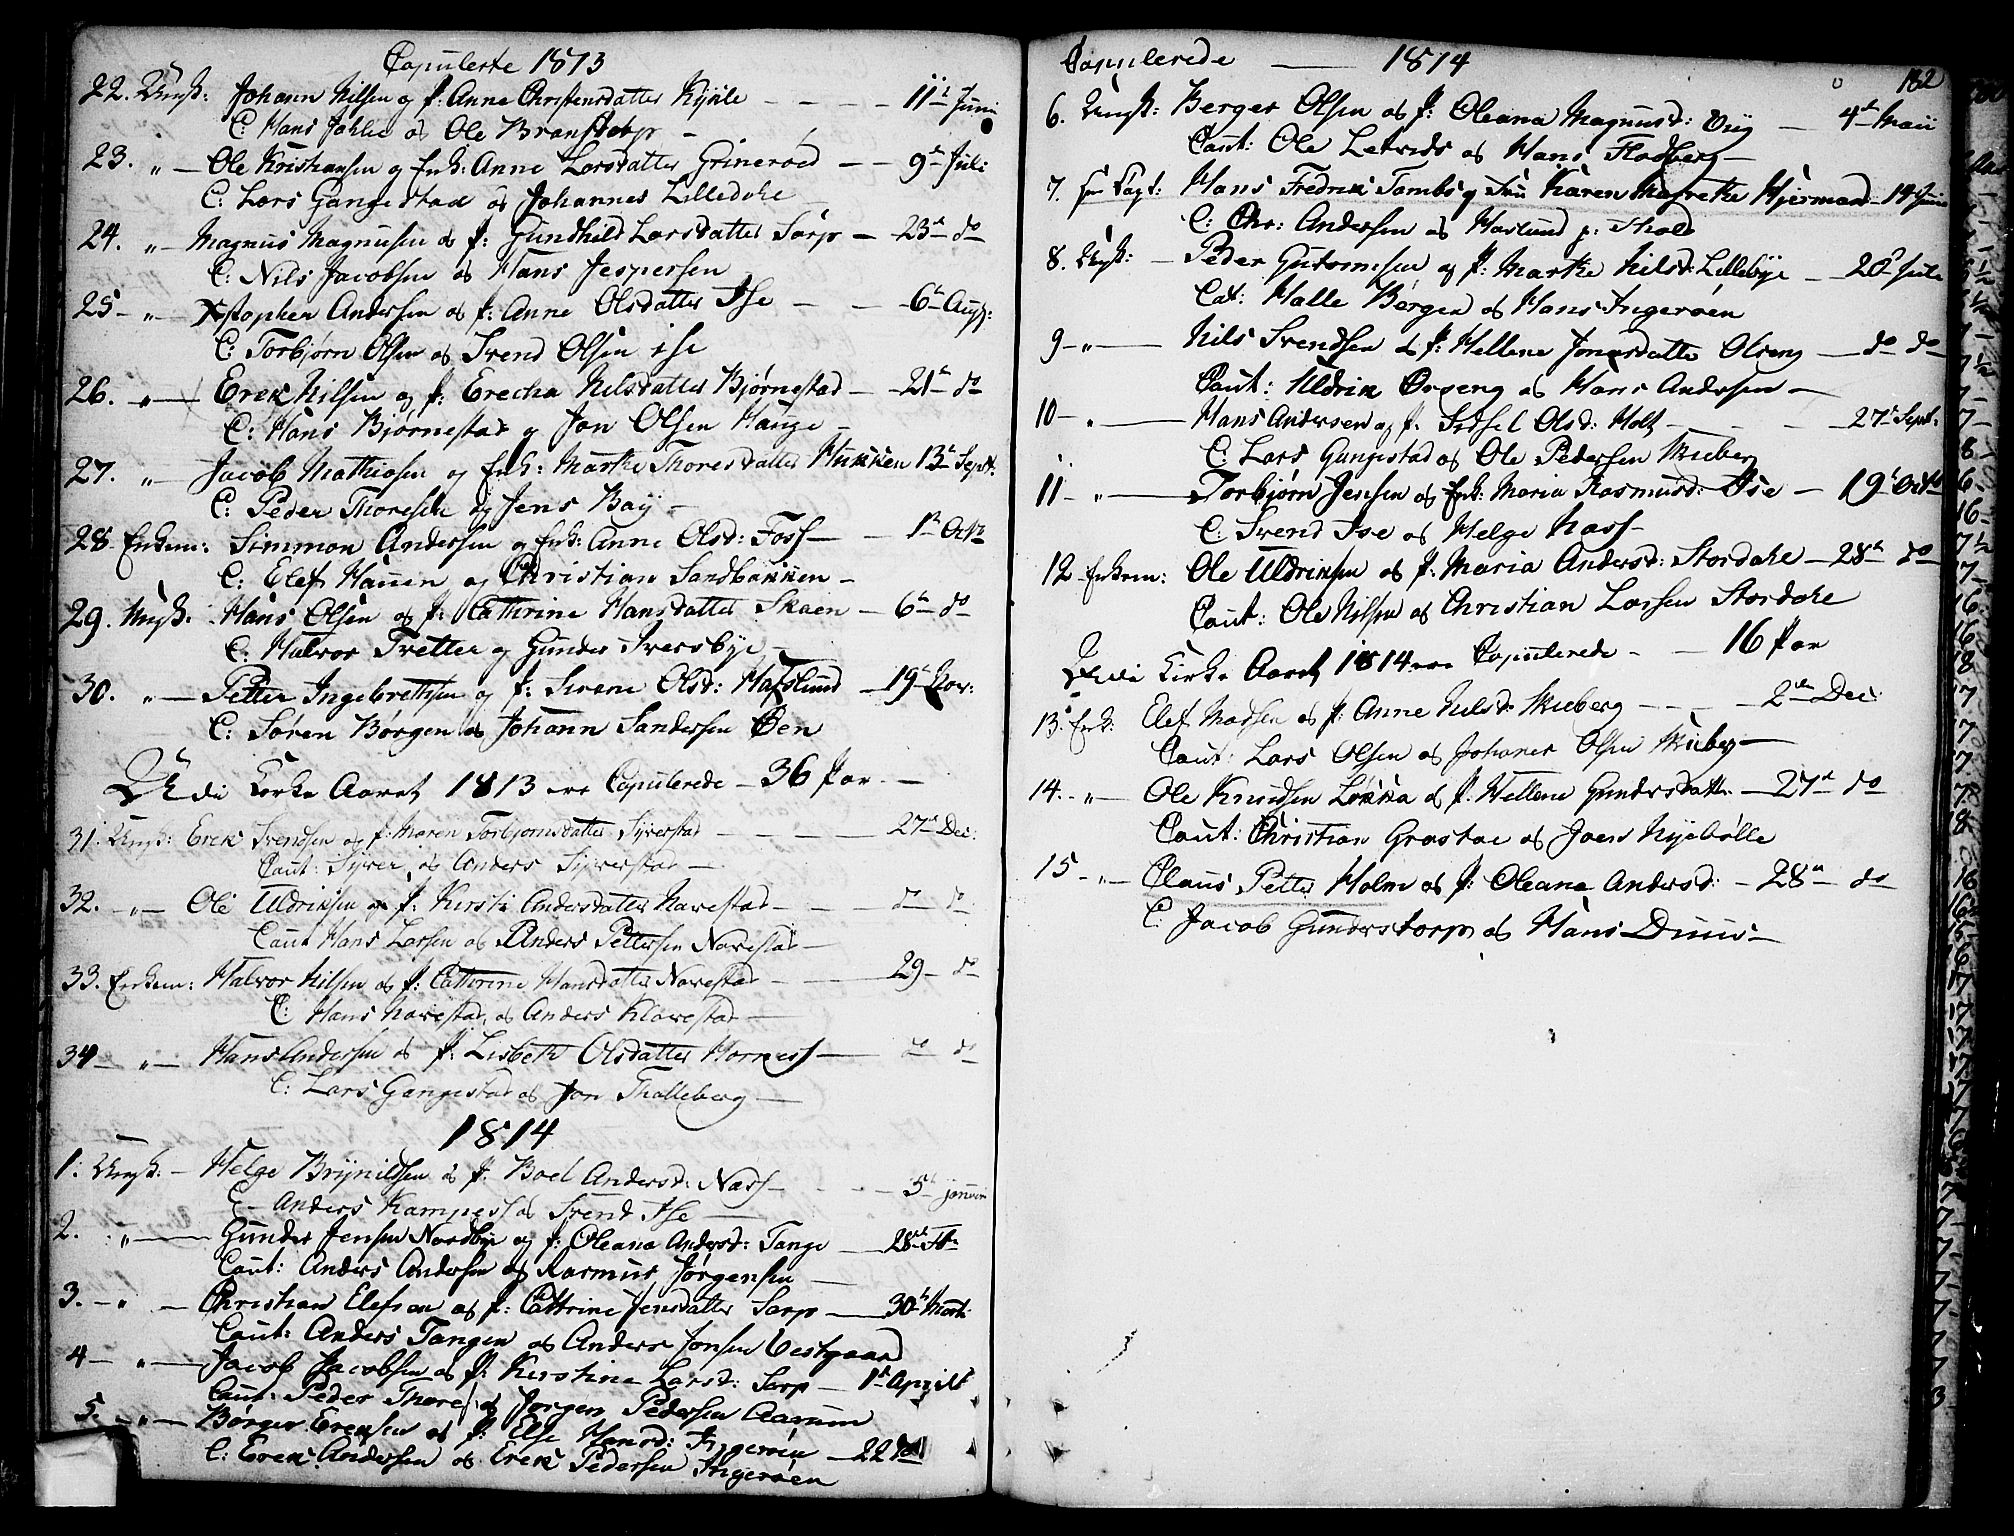 Copulerte 1813
22. Ungk: Johann Nilsen og P: Anne Christensdatter Kjøle - - - 11te Juni
C: Hans Johler og Ole Branstorp -
23. " - Ole Kristiansen og Enk: Anne Larsdatter Grinerød - - 9de Juli
C: Lars Gangestad og Johannes Lilledohe
24. " - Magnus Magnusen og P: Gundhild Larsdatter Sarp - 23de do
C: Nils Jacobsen og Hans Jespersen
25 - " - Xstopher Andersen og P: Anne Olsdatter Ise - - 6te Aug:
C: Torbjørn Olsen og Svend Olsen Ise
26. " - Erek Nilsen og P: Erecha Nilsdatter Bjørnestad - 21de do
C: Hans Bjørnestad og Jon Olsen Hauge -
27. " Jacob Mathiesen og Enk: Marthe Thoresdatter Hukken 13de Sept:
C: Peder Thoresen og Jens Bay -
28 Enkem: Simmon Andersen og Enk: Anne Olsd: Foss - - 1te Octb
C: Elef Hauen og Christian Sandbakken -
29. Ungk: Hans Olsen og P: Cathrine Hansdatter Skaen - 6te do
C: Halvor Tretter og Gunder Iversbye -
30. " - Petter Ingebrethsen og P: Sirene Olsd: Hafslund - 19de Nov:
C: Søren Børgen og Johann Sandersen Øen
Udi Kirke Aaret 1813 ere Copulerede - 36 Par -
31. Ungk: Erek Svendsen og P: Maren Torbjørnsdatter Syverstad - - - 27de Dec:
Caut: Syver, og Anders Syverstad -
32. - " - Ole Uldriksen og P: Kirsti Andersdatter Navestad - - do do
Caut Hans Larsen og Anders Pettersen Navestad -
33. Enkem: Halvor Nilsen og P: Cathrine Hansdatter Navestad - - 29 - do
C: Hans Navestad, og Anders Klavestad -
34 - " - Hans Andersen og P: Lisbeth Olsdatter Hornness - do do
C: Lars Gangestad og Jon Thalleberg -
1814
1: Ungk: - Helge Brynildsen og P: Boel Andersd: Næss - - - 5te januari
C - Anders Kampes og Svend Ise -
2. " - Gunder Jensen Nordbye og P: Oleana Andersd: Tange - 28de Fb:
Caut: Anders Andersen og Rasmus Jørgensen -
3. - " - Christian Elefsen og P: Cathrine Jensdatter Sarp - 30te Marti
Caut: Anders Tangen og Anders Jonsen Vestgaard
4 - " - Jacob Jacobsen og P: Kirstine Larsd: Sarp - 1te Aprili
Caut: Peder Thores og Jørgen Pedersen Aarum
5. - " - Børger Ereksen og P: Else Hansd: Ingerøen - 22 do
C: Erek Andersen og Erek Pedersen Ingerøen
Copulerede - 1814
182
6. Ungk: Berger Olsen og P: Oleana Magnusd: Viig - 4de Maii
Caut: Ole Letvids og Hans Flodberg -
7. Hr Capt: Hans Fredrik Tambs og Frue Karen Magrethe Hjerman - 14 Juni
C: Chr: Andersen og Haslund p: Thold
8. Ungk: - Peder Gutormsen og P: Marthe Nilsd: Lillebye - 20de Juli
Cat: Halle Børgen og Hans Ingerøen
9 - " - Nils Svendsen og P: Hellene Jonasdatter Olseng - do do
Caut: Uldrik Orseng og Hans Andersen -
10 - " - Hans Andersen og P: Sidsel Olsd: Holt - - 27de Sept:
C: Lars Gangestad og Ole Pedersen Skieberg
11 - " - Torbjørn Jensen og Enk: Maria Rasmusd: Ise - 19de Octb
C: Svend Ise og Helge Næss -
12 Enkem: Ole Uldriksen og P: Maria Andersd: Stordohe - 28de do
Caut: Ole Nilsen og Christian Larsen Stordohe
Udi Kirke Aaret 1814 ere Copulerede - - 16 Par
13. Enk: Elef Madsen og P: Anne Nilsd: Skieberg - - - 2de Dec:
Caut: Lars Olsen og Johanes Olsen Skieberg -
14. - " - Ole Knudsen Løkka og P: Hellene Gundersdatter - 27de do
Caut: Christian Grostae og Joen Nyebølle
15 - " - Claus Petter Holm og P: Oleana Andersd: - 28de do
C: Jacob Gunderstorp og Hans Duus -